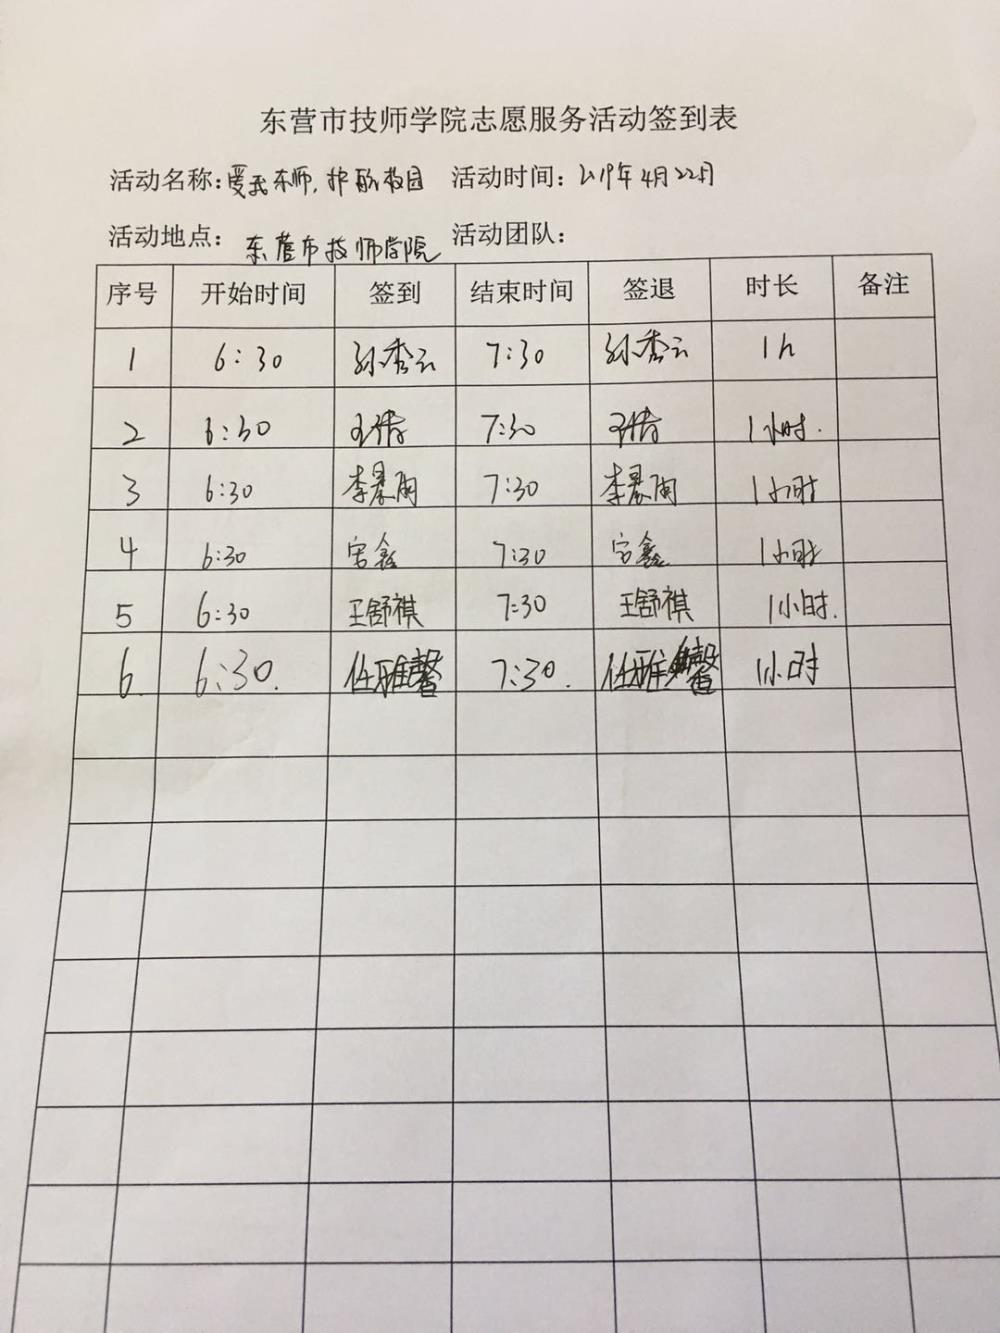 东营市技师学院志愿服务活动签到表
活动名称：爱我东师，护航校园 活动时间：2019年4月22日
活动地点：东营市技师学院 活动团队：
序号 开始时间 签到 结束时间 签退 时长 备注
1 6:30 孙秀云 7:30 孙秀云 1h
2 6:30 王倩 7:30 王倩 1小时.
3 6:30 李晨阳 7:30 李晨阳 1小时
4 6:30 宫鑫 7:30 宫鑫 1小时
5 6:30 王舒祺 7:30 王舒祺 1小时.
6. 6:30. 任雅馨 7:30. 任雅馨 1小时